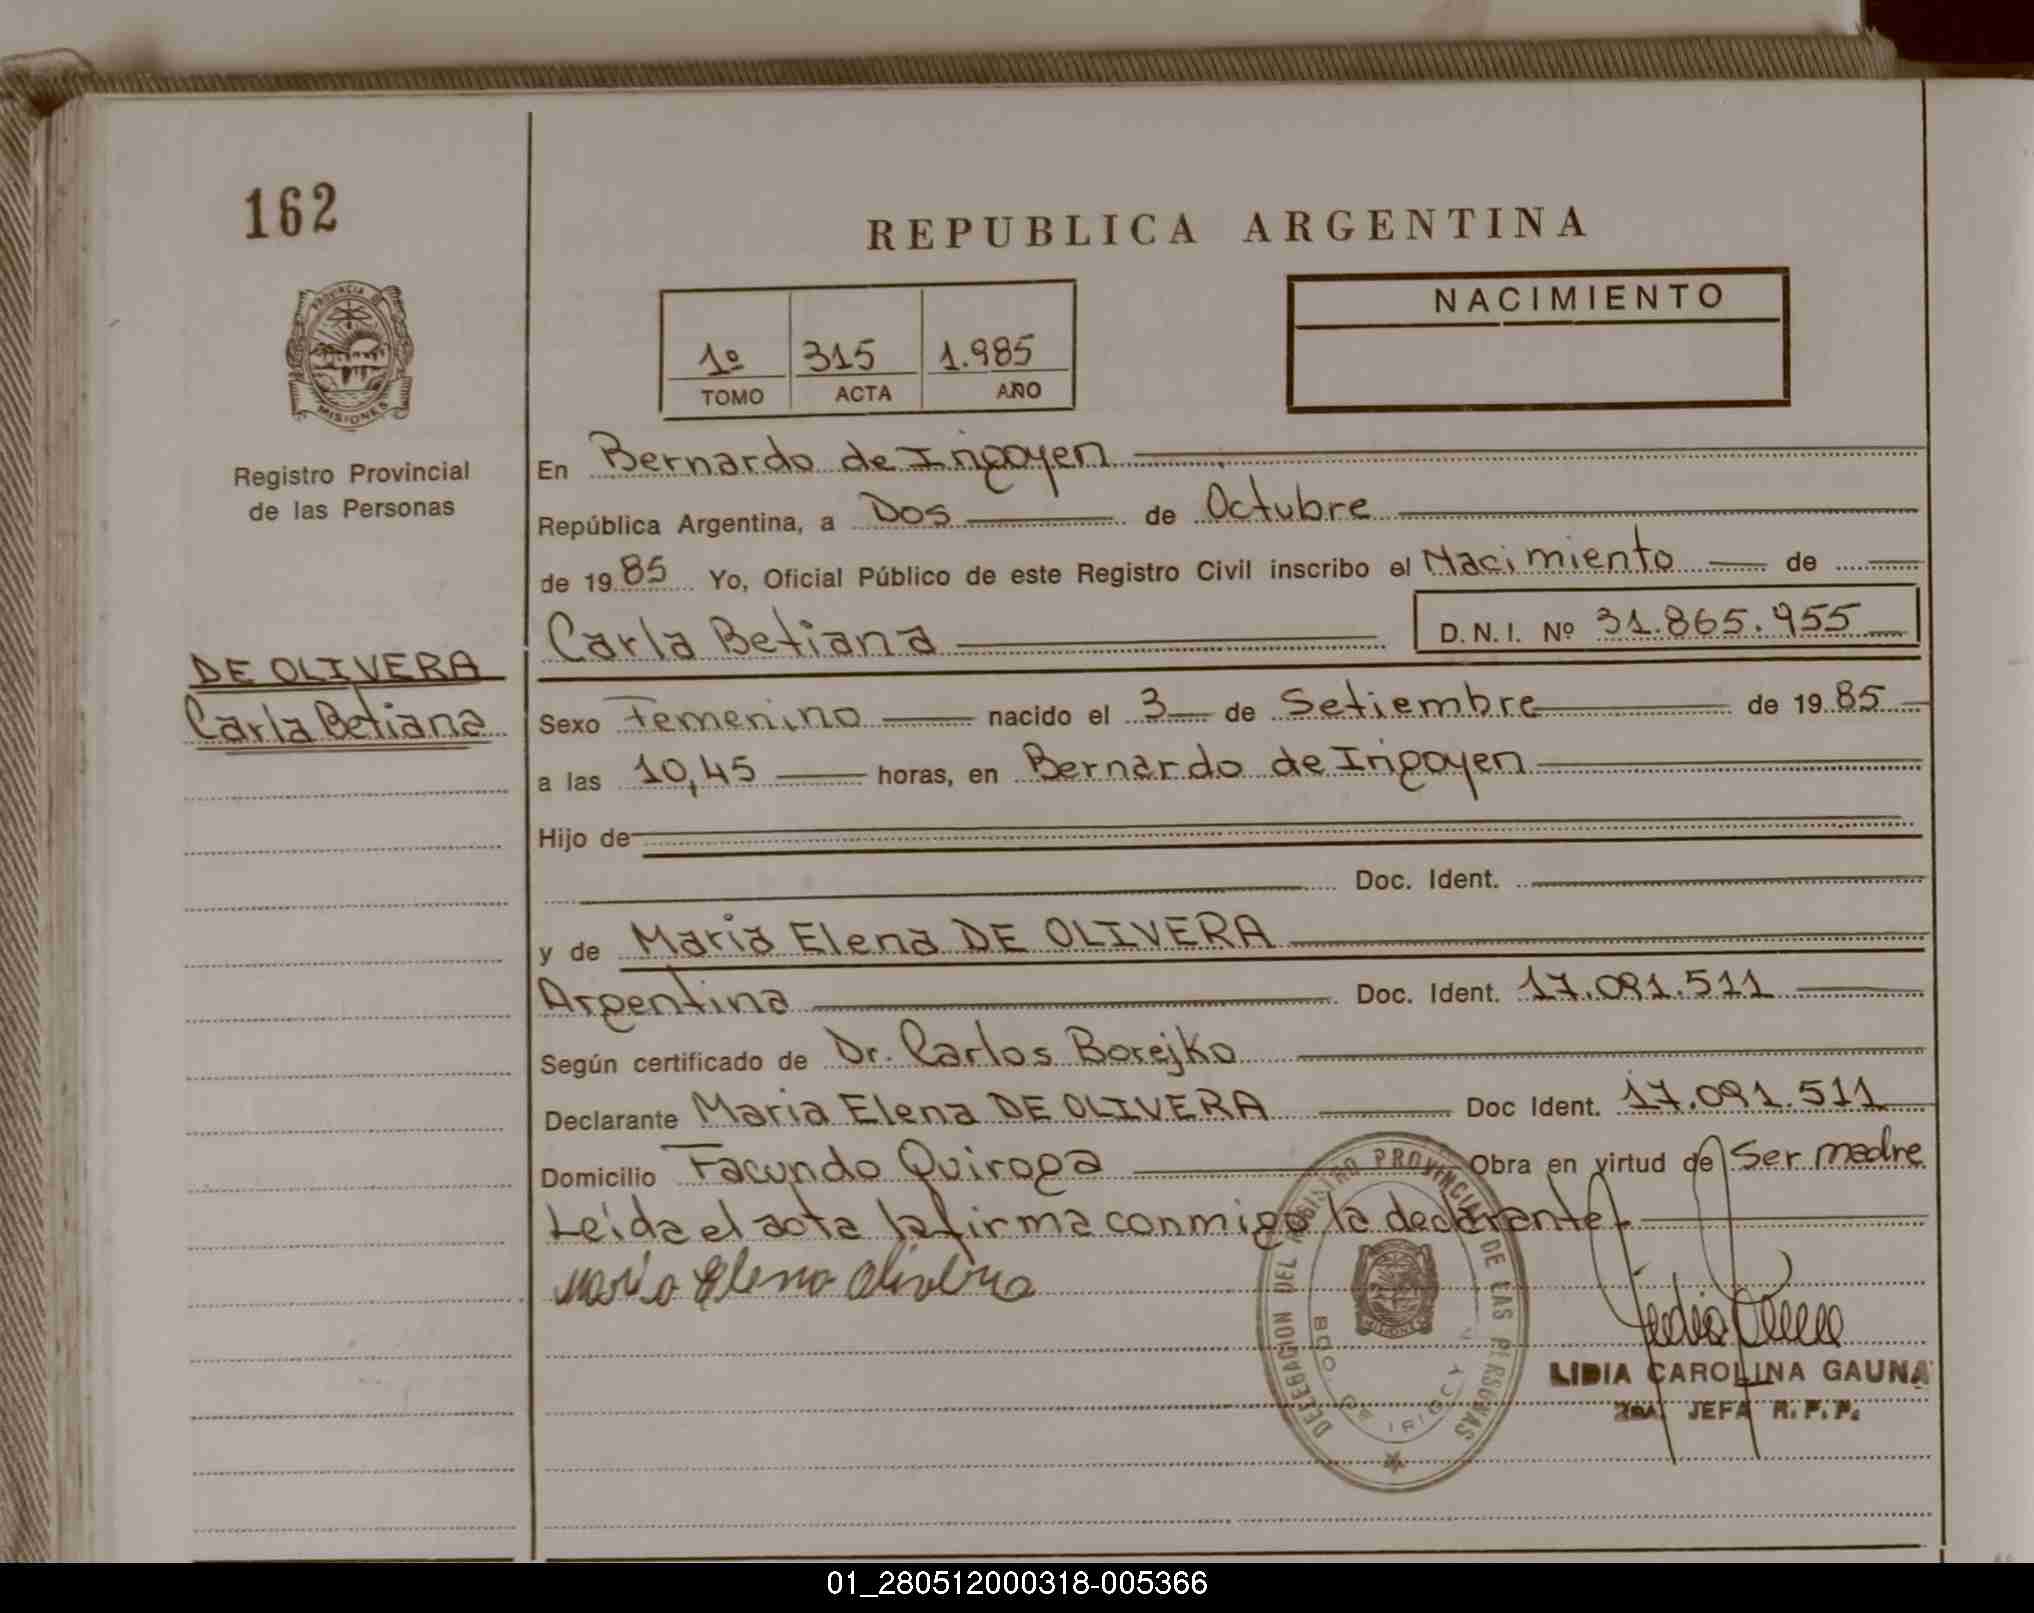 162
REPUBLICA ARGENTINA
PROVINCIA DE
MISIONES
Registro Provincial
de las Personas
1º 315 1.985
TOMO ACTA AÑO
NACIMIENTO
En Bernardo de Irigoyen
República Argentina, a Dos de Octubre
de 19 85 Yo, Oficial Público de este Registro Civil inscribo el Nacimiento de
Carla Betiana D.N.I. Nº 31.865.955
DE OLIVERA
Carla Betiana
Sexo Femenino nacido el 3 de Setiembre de 19 85
a las 10,45 horas, en Bernardo de Irigoyen
Hijo de
Doc. Ident.
y de Maria Elena DE OLIVERA
Argentina Doc. Ident. 17.091.511
Según certificado de Dr. Carlos Borejko
Declarante Maria Elena DE OLIVERA Doc Ident. 17.091.511
Domicilio Facundo Quiroga Obra en virtud de Ser madre
Leída el acta la firma conmigo la declarante
Maria Elena Olivera
DELEGACION DEL REGISTRO PROVINCIAL DE LAS PERSONAS
MISIONES
BDO. DE IRIGOYEN
LIDIA CAROLINA GAUNA
2da. JEFA R.P.P.
01_280512000318-005366